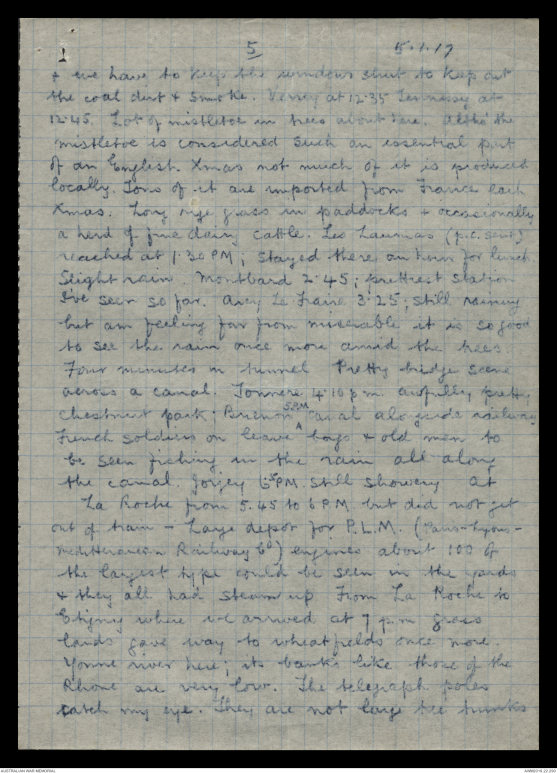 5 5.1.17
& we have to keep the windows shut to keep out
the coal dust & smoke. Verrey at 12.35 Lennessy at
12.45. Lot of mistletoe in trees about here. Altho' the
mistletoe is considered such an essential part
of an English Xmas not much of it is produced
locally. Tons of it are imported from France each
Xmas. Long rye grass in paddocks & occasionally
a herd of fine dairy cattle. Les Laumes (p.c. sent)
reached at 1.30 PM; stayed there an hour for lunch.
Slight rain. Montbard 2.45; prettiest station
I've seen so far. 3.25; still raining
but am feeling far from miserable it is so good
to see the rain once more amid the trees
Four minutes in tunnel Pretty bridge scene
across a canal. Tonnere 4.10 p.m. awfully pretty
chestnut park; Brienon 5 PM canal alongside railway
French soldiers on leave boys & old men to
be seen fishing in the rain all along
the canal. PM. Still showery at
La Roche from 5.45 to 6 PM but did not get
out of train - Large depot for P.L.M. (Paris-Lyons-
Mediterranean Railway Co) engines about 100 of
the largest type could be seen in the yards
& they all had steam up From La Roche to
Etigny where we arrived at 7 p.m grass
lands gave way to wheatfields once more.
Yonne river here; its banks like those of the
Rhone are very low. The telegraph poles
catch my eye. They are not large tree trunks
AUSTRALIAN WAR MEMORIAL